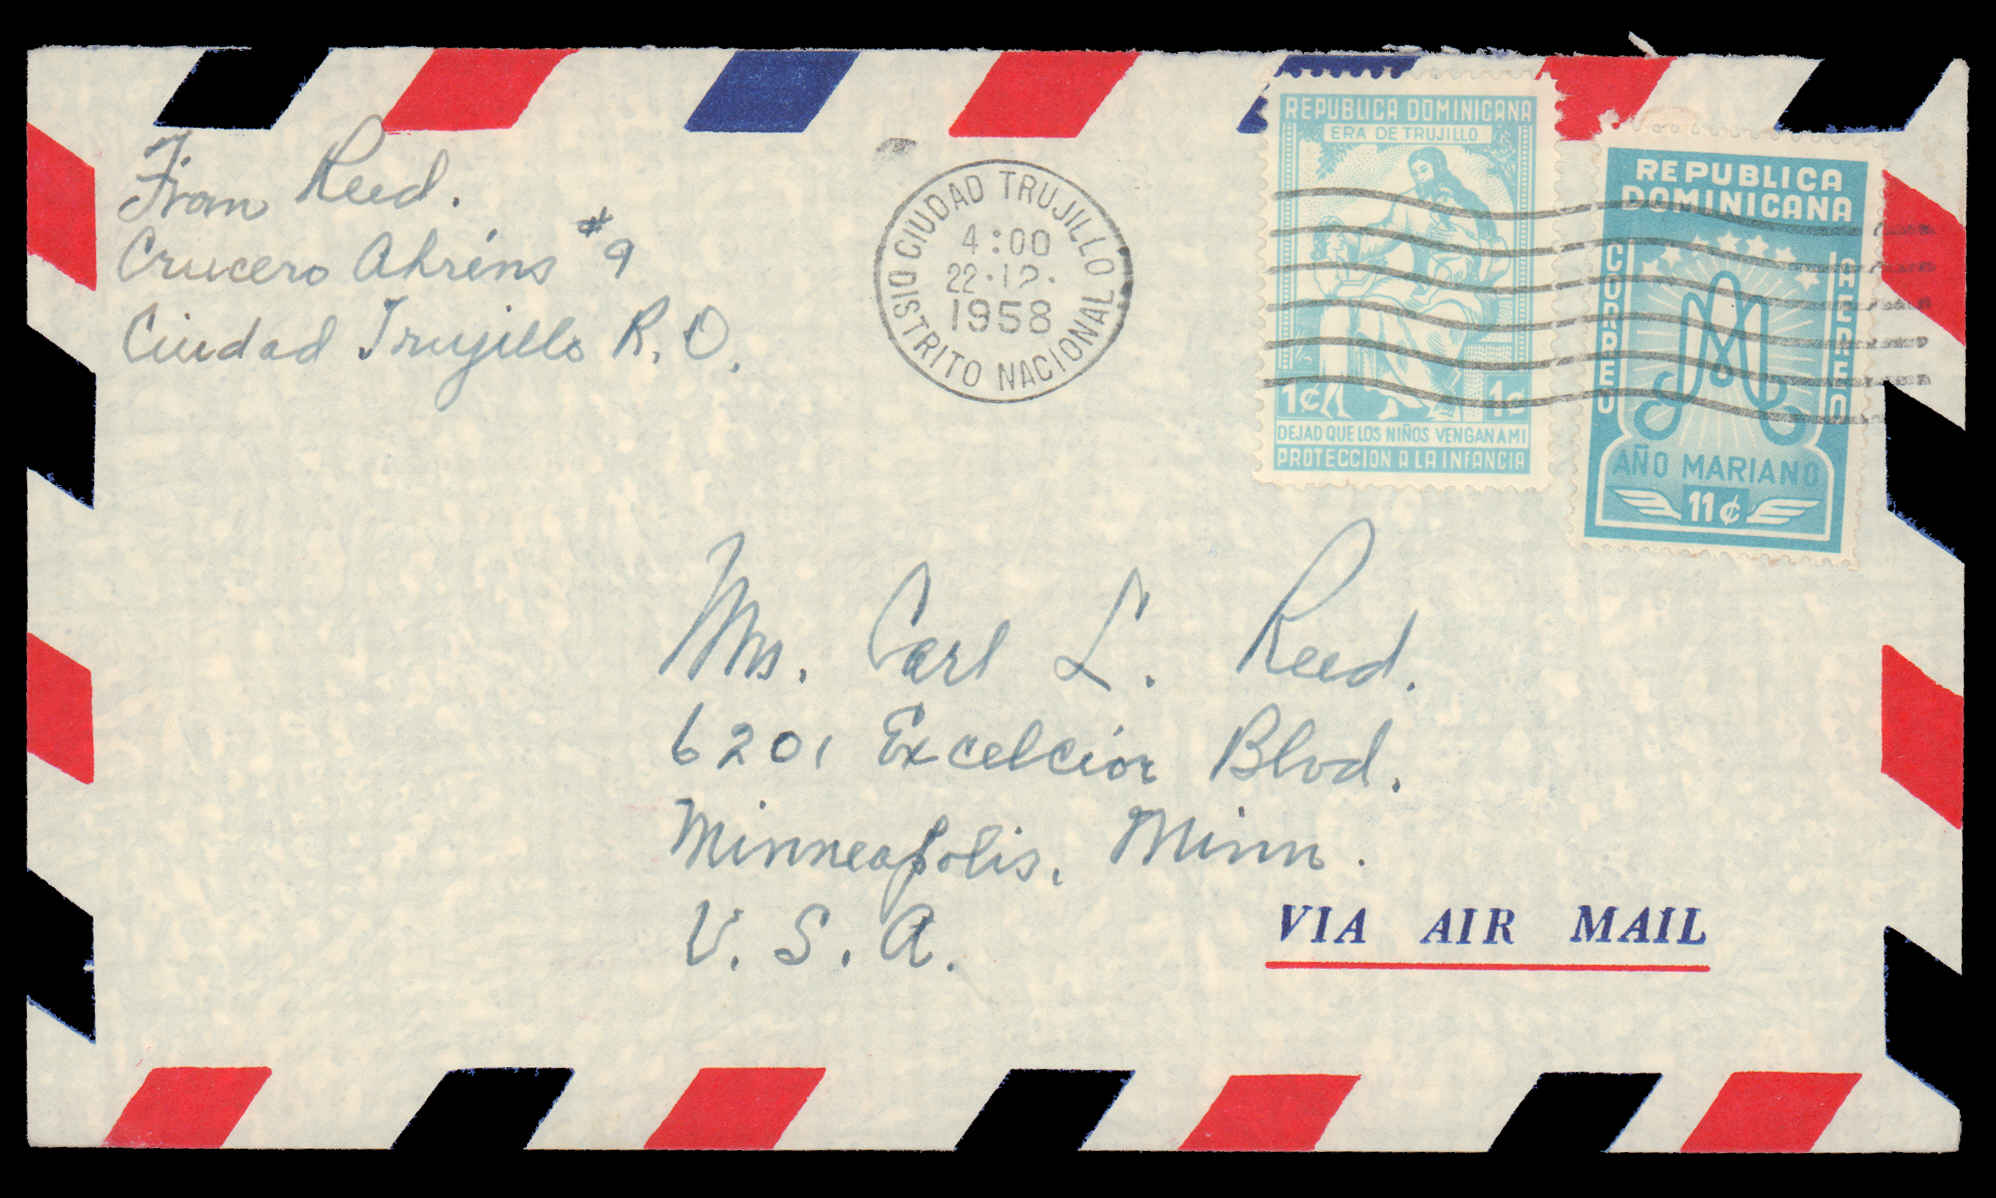 Fran Reed.
Crucero Ahrens #9
Ciudad Trujillo R.D.
CIUDAD TRUJILLO
4:00
22·12·
1958
DISTRITO NACIONAL
REPUBLICA DOMINICANA
ERA DE TRUJILLO
1¢ 1¢
DEJAD QUE LOS NIÑOS VENGAN A MI
PROTECCION A LA INFANCIA
REPUBLICA
DOMINICANA
CORREO
AEREO
AÑO MARIANO
11¢
Mrs. Carl L. Reed.
6201 Excelcior Blvd.
Minneapolis, Minn.
U.S.A.
VIA AIR MAIL